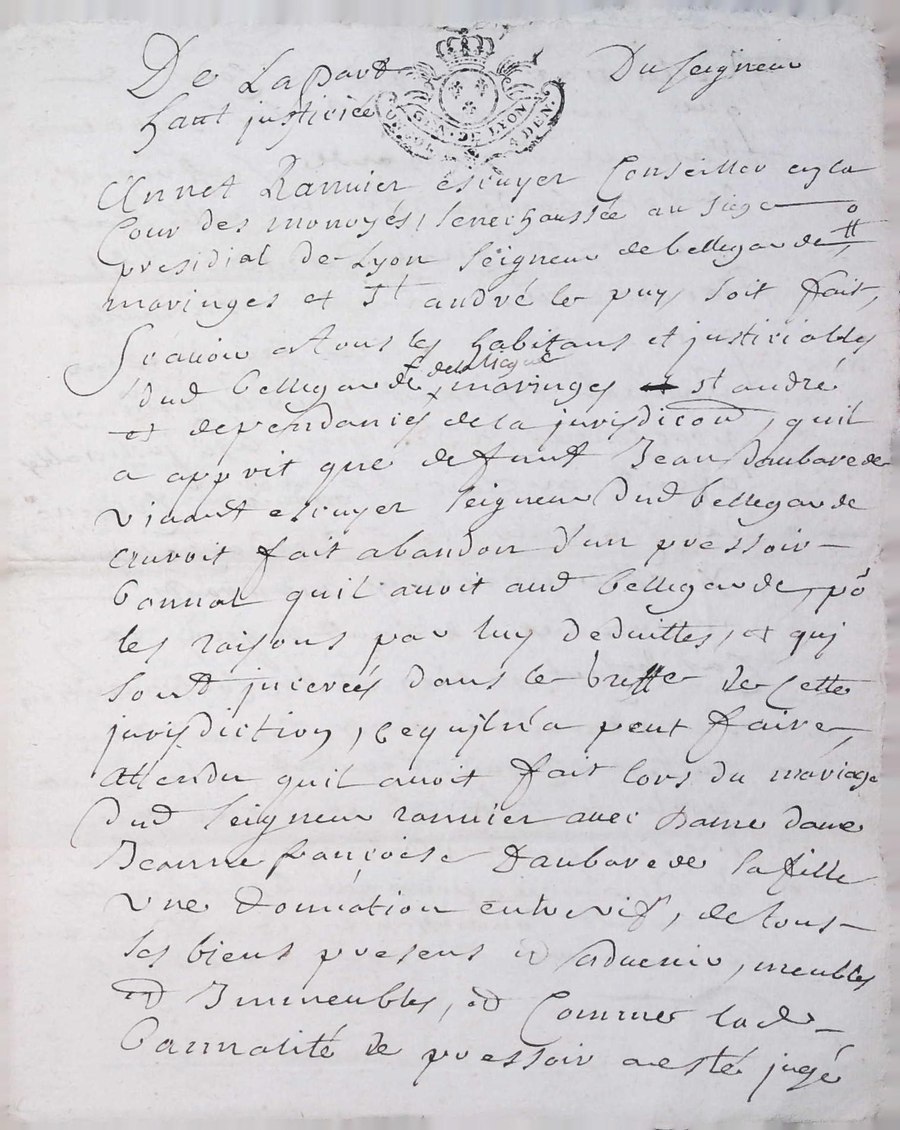 De La part Du seigneur
haut justicié
GEN. DE LYON
4 DEN.
Annet Rannier escuyer Conseiller en la
Cour des monoyés, senechaussée au siege
presidial de Lyon seigneur de bellegarde
maringes et St andré le puy, soit fait,
scavoir a tous les habitans et justiciables
dud bellegarde, maringes st andré
et dependances de la jurisdicon, quil
a apprit que defunt Jean daubarede
vivant escuyer seigneur dud bellegarde
auroit fait abandon d'un pressoir
bannal quil avoit aud bellegarde, po
les raisons par luy deduittes, et quj
sont jncerées dans le greffe de cette
jurisdiction, ce qujl n'a peut faire
attendu quil avoit fait lors du mariage
dud seigneur rannier avec dame
Jeanne françoise Daubarede sa fille
une donnation entre vifs, de tous
ses biens presens et advenir, meubles
et Immeubles, et Comme lad
bannalité de pressoir a esté jugé